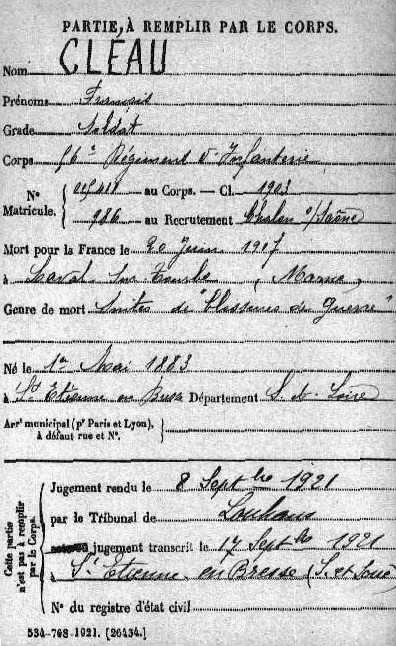 PARTIE À REMPLIR PAR LE CORPS.
Nom CLÉAU
Prénoms François
Grade Soldat
Corps 56e Régiment d'Infanterie
N° Matricule. { au Corps. — Cl. 1903
986 au Recrutement Chalon s/Saône
Mort pour la France le 20 Juin 1917
à Laval sur Tourbe (Marne)
Genre de mort Suites de "Blessures de Guerre"
Né le 1er Mai 1883
à St Etienne en Bresse Département S.-et-Loire
Arrt municipal (pr Paris et Lyon), à défaut rue et N°. {
Cette partie n'est pas à remplir par le Corps.
Jugement rendu le 8 Septbre 1921
par le Tribunal de Louhans
jugement transcrit le 17 Septbre 1921
à St Etienne en Bresse (S. et Loire)
N° du registre d'état civil
534-708-1921. [26434.]